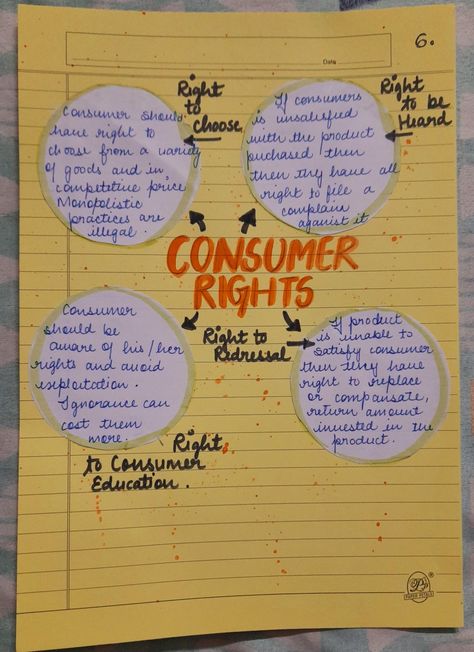 6.
Date
Right
to
Choose
Consumer should
have right to
choose from a variety
of goods and in
competitive price
Monopolistic
practices are
illegal.
Right
to be
Heard
If consumers
is unsatisfied
with the product
puchased then
then they have all
right to file a
complain
aganist it
CONSUMER
RIGHTS
Consumer
should be
aware of his/her
rights and avoid
exploitation.
Ignorance can
cost them
more.
Right
to Consumer
Education.
Right to
Ridressal
If product
is unable to
satisfy consumer
then they have
right to replace
or compansate,
return amount
invested in the
product.